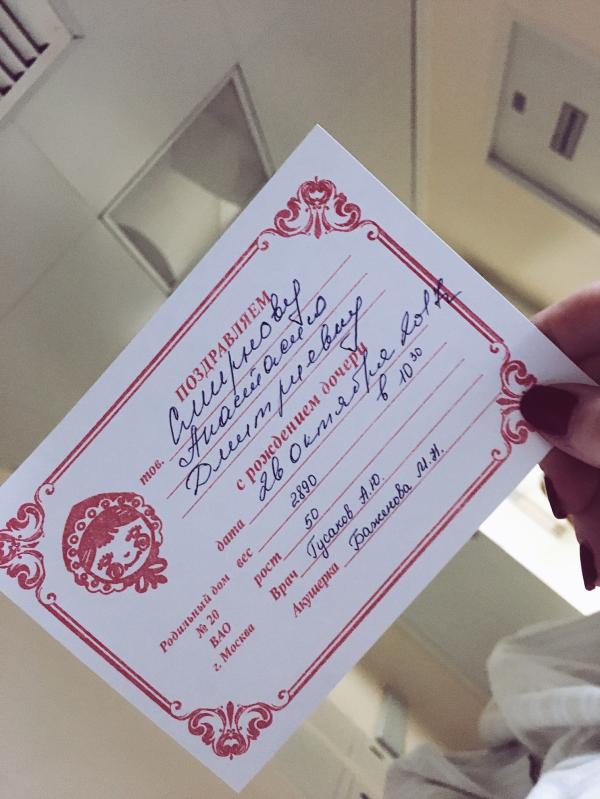 ПОЗДРАВЛЯЕМ
тов. Смирнову
Анастасию
Дмитриевну
с рождением дочери
дата 26 Октября 2017
в 10 30
вес 2890
рост 50
Врач Гусаков А.Ю.
Акушерка Баженова М.Н.
Родильный дом
№ 20
ВАО
г. Москва